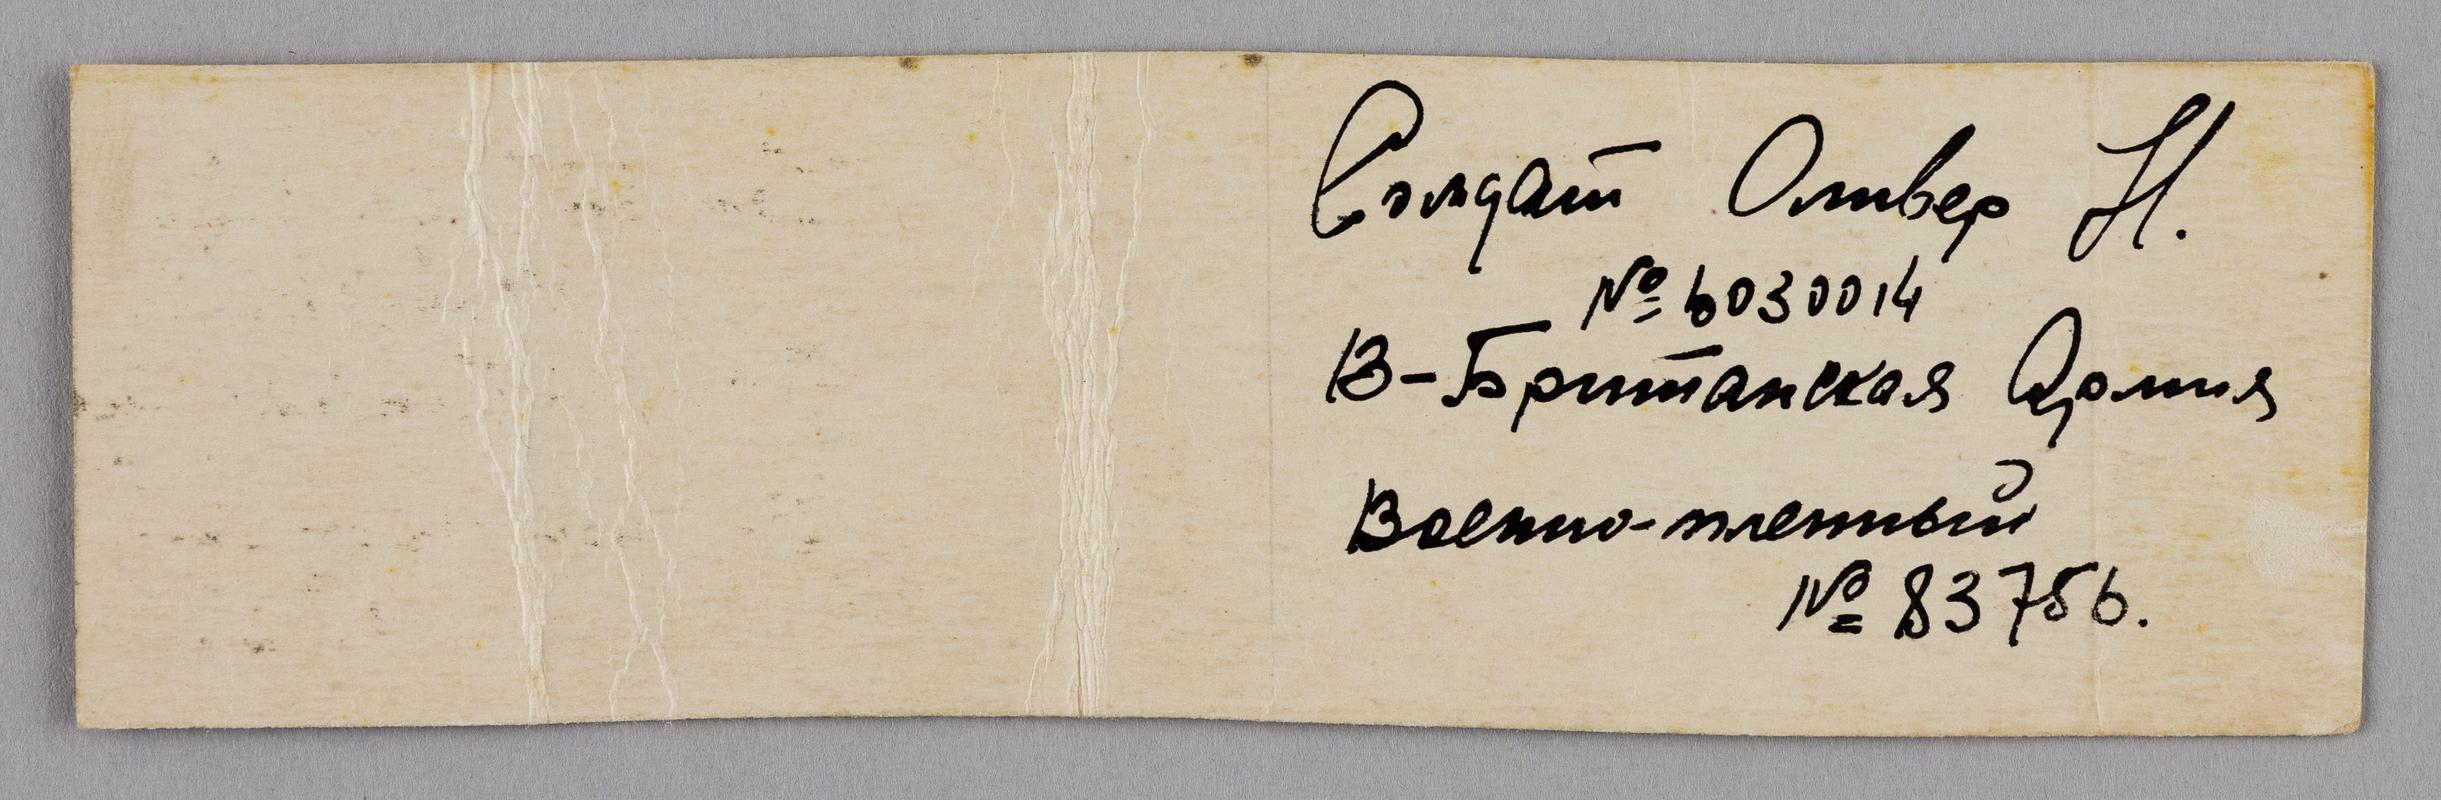 Солдат Оливер Н.
№ 6030014
В-Британская Армия
Военно-пленный
№ 83756.